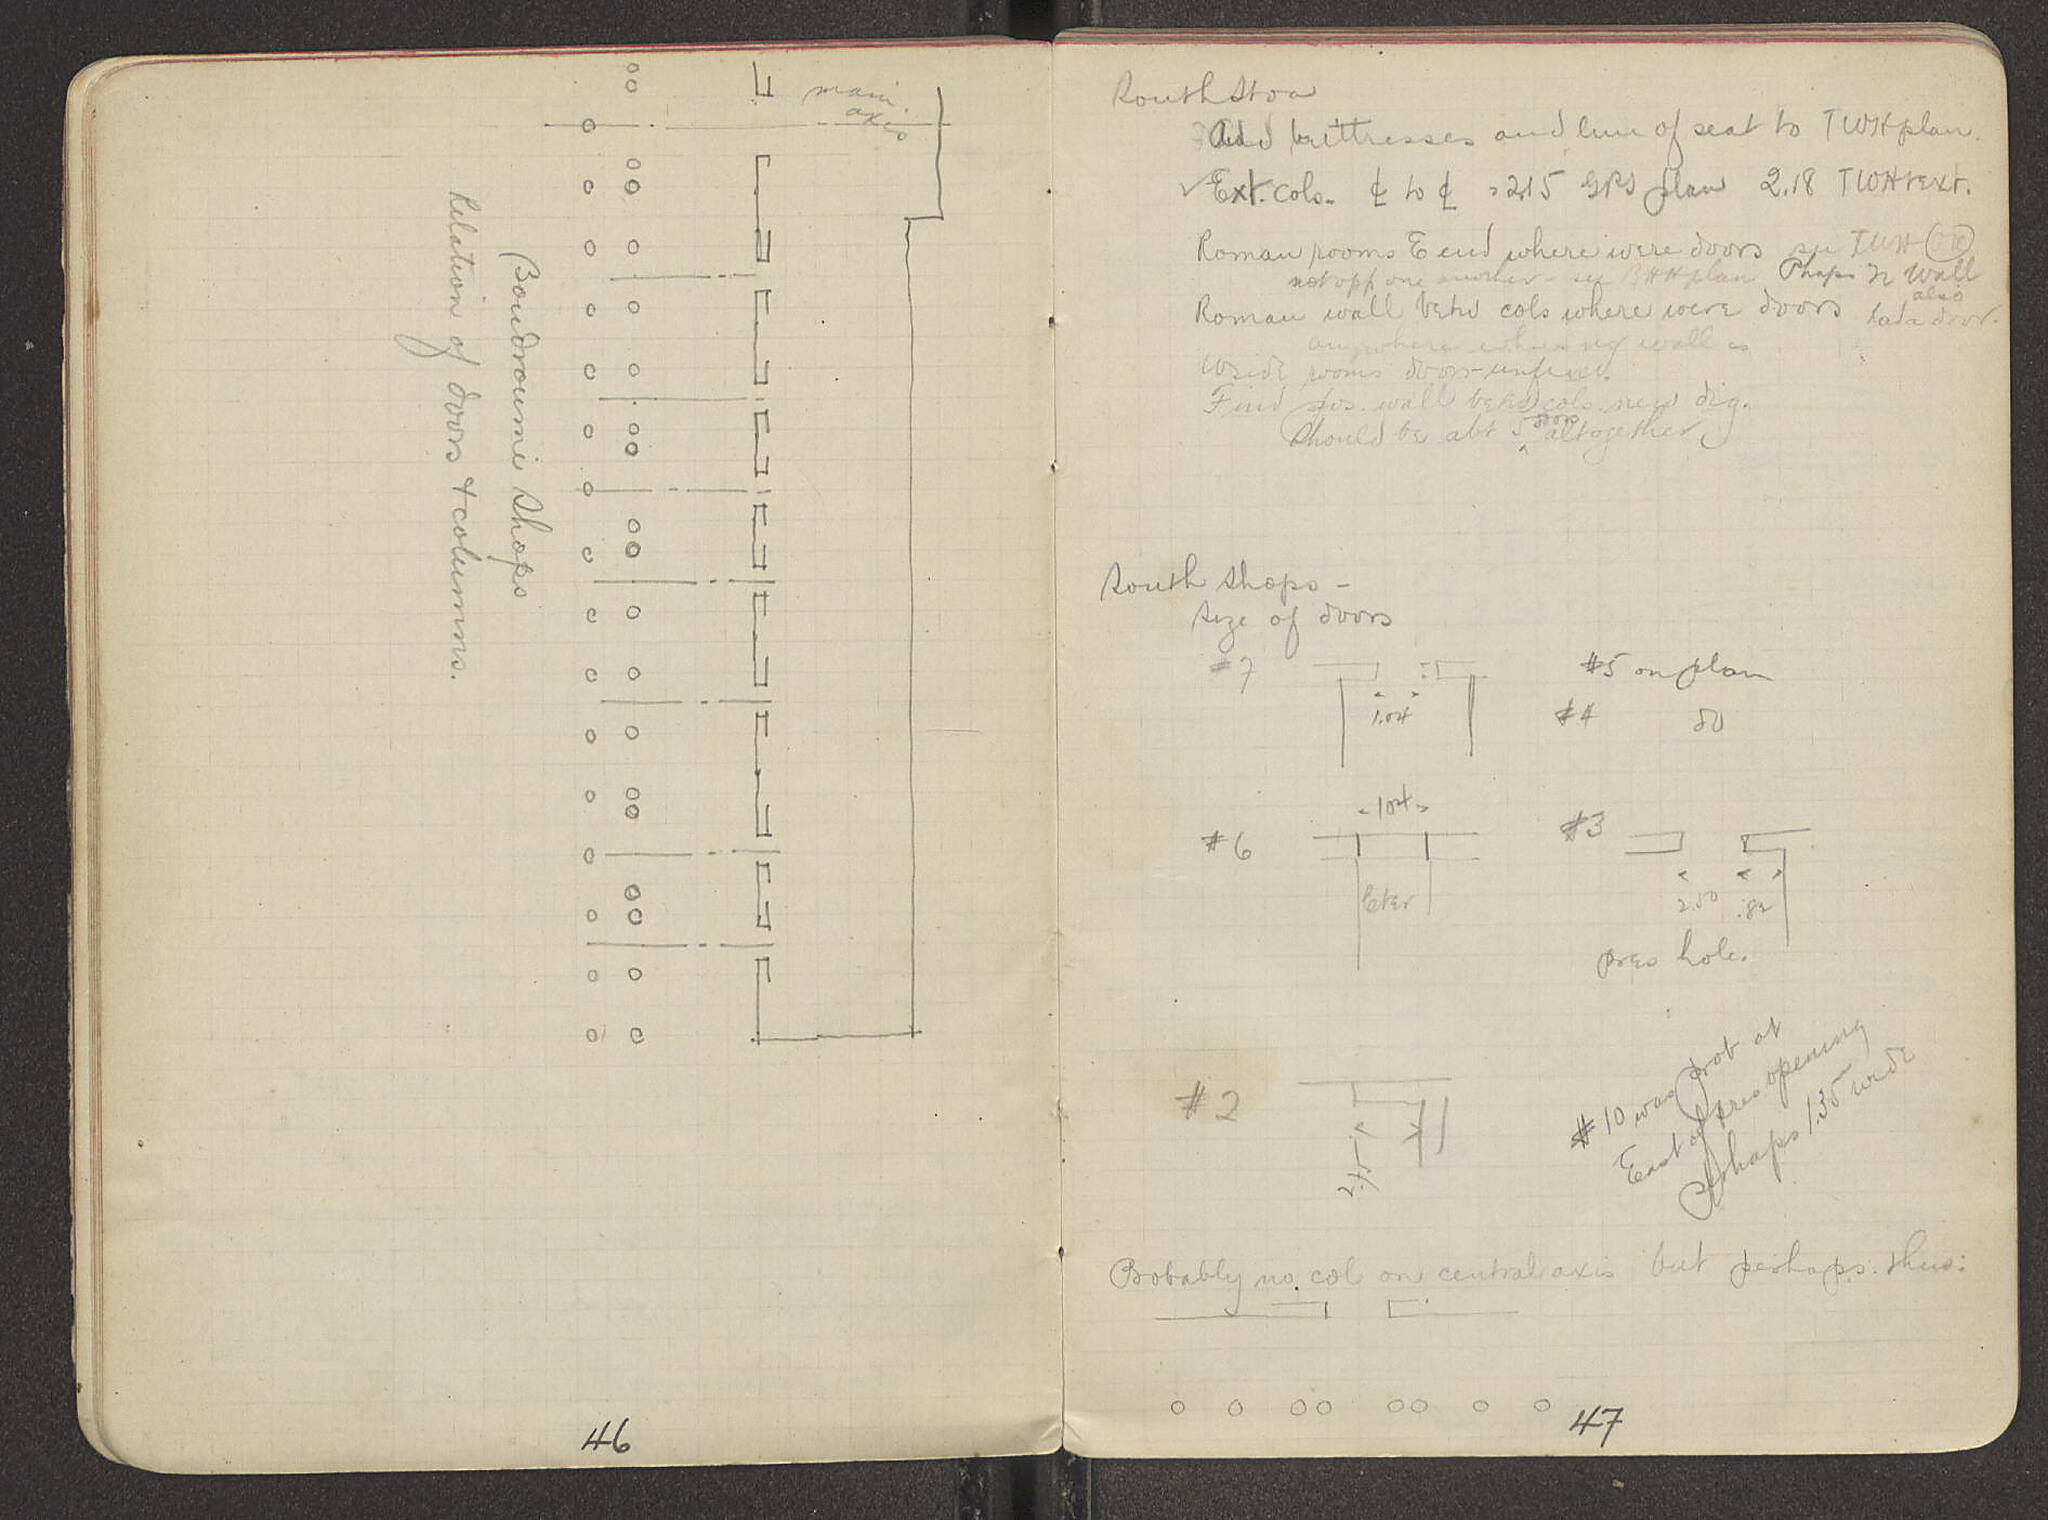 main
axis
Boudroumi Shops
Relation of doors & columns.
46
South Stoa
Add buttresses and line of seat to TWH plan.
✓ Ext. cols. ℄ to ℄ 2.15 GPS plan 2.18 TWH text.
Roman rooms E end where were doors see TWH OK
not opp one another - see BHH plan Phaps N Wall
also
Roman wall betw cols where were doors had a door.
anywhere where no wall is
W side rooms doors
Find wall betw cols. new dig.
doors
Should be abt 5 altogether
South Shops -
Size of doors
#7
1.04
#5 on plan
#4 do
#6
1.04
#3
2.50 .82
pres hole.
#2
2.45
#10 was prob at
East of pres opening
Perhaps 1.35 wide
Probably no col on central axis but perhaps thus:
47